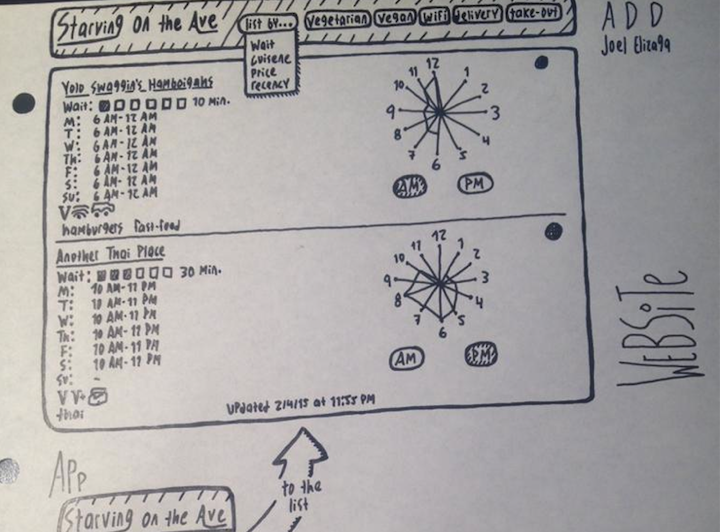 Starving on the Ave list by... vegetarian vegan wifi delivery take-out
Wait
cuisene
Price
recency
ADD
Joel Elizaga
Yolo Swaggin's Hamboigahs
Wait: 10 Min.
M: 6 AM-12 AM
T: 6 AM-12 AM
W: 6 AM-12 AM
Th: 6 AM-12 AM
F: 6 AM-12 AM
S: 6 AM-12 AM
SU: 6 AM-12 AM
V
hamburgers fast-food
12
1
2
3
4
5
6
7
8
9
10
11
AM PM
Another Thai Place
Wait: 30 Min.
M: 10 AM-11 PM
T: 10 AM-11 PM
W: 10 AM-11 PM
Th: 10 AM-11 PM
F: 10 AM-11 PM
S: 10 AM-11 PM
SU: -
V V+
thai
12
1
2
3
4
5
6
7
8
9
10
11
AM PM
updated 2/4/15 at 11:55 PM
WEBSiTe
APp
Starving on the Ave
to the
list